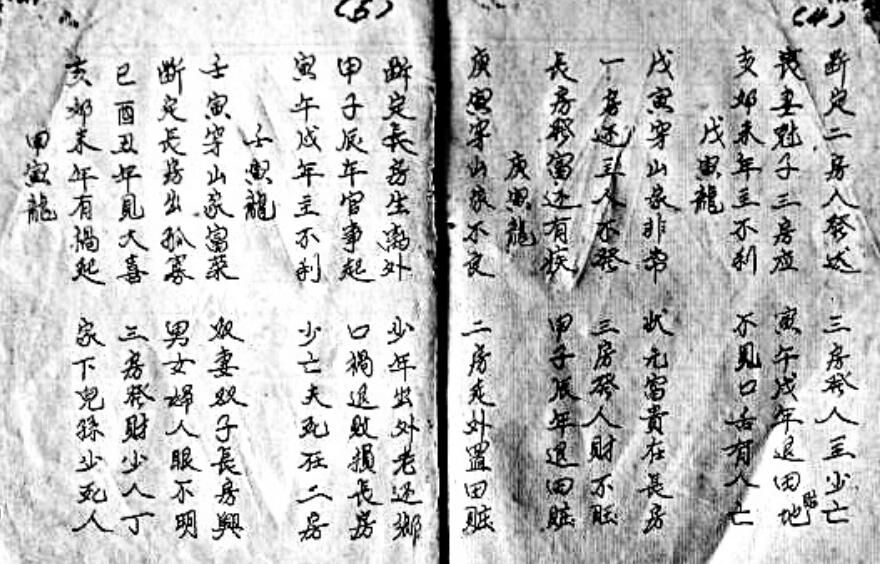 (4)
断定二房人發达 三房發人主少亡
喪妻尅子三房应 寅午戌年退田地
亥卯未年主不利 不見口舌有人亡
戊寅龍
戊寅穿山家非常 状元富貴在長房
一房还主人不發 三房發人財不旺
長房發富还有疾 甲子辰年退田庄
庚寅龍
庚寅穿山家不良 二房走外置田庄
(5)
断定長房生离外 少年出外老还鄉
甲子辰年官事起 口禍退敗損長房
寅午戌年主不利 少亡夫死在二房
壬寅龍
壬寅穿山家富荣 奴妻奴子長房興
断定長房出孤寡 男女婦人眼不明
巳酉丑年見大喜 三房發財少人丁
亥卯未年有禍起 家下兒孫少死人
甲寅龍